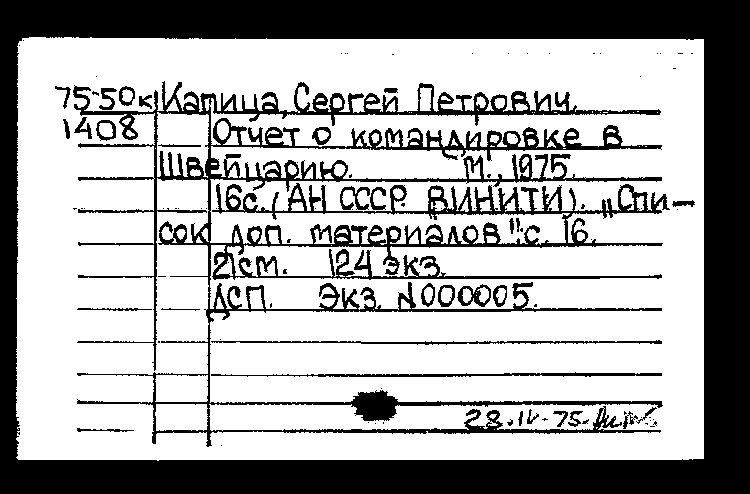 75-50к Капица, Сергей Петрович.
1408 Отчет о командировке в
Швейцарию. М., 1975.
16с. (АН СССР. ВИНИТИ). „Спи-
сок доп. материалов": с. 16.
21см. 124 экз.
ДСП. Экз. N000005.
28.IV-75-